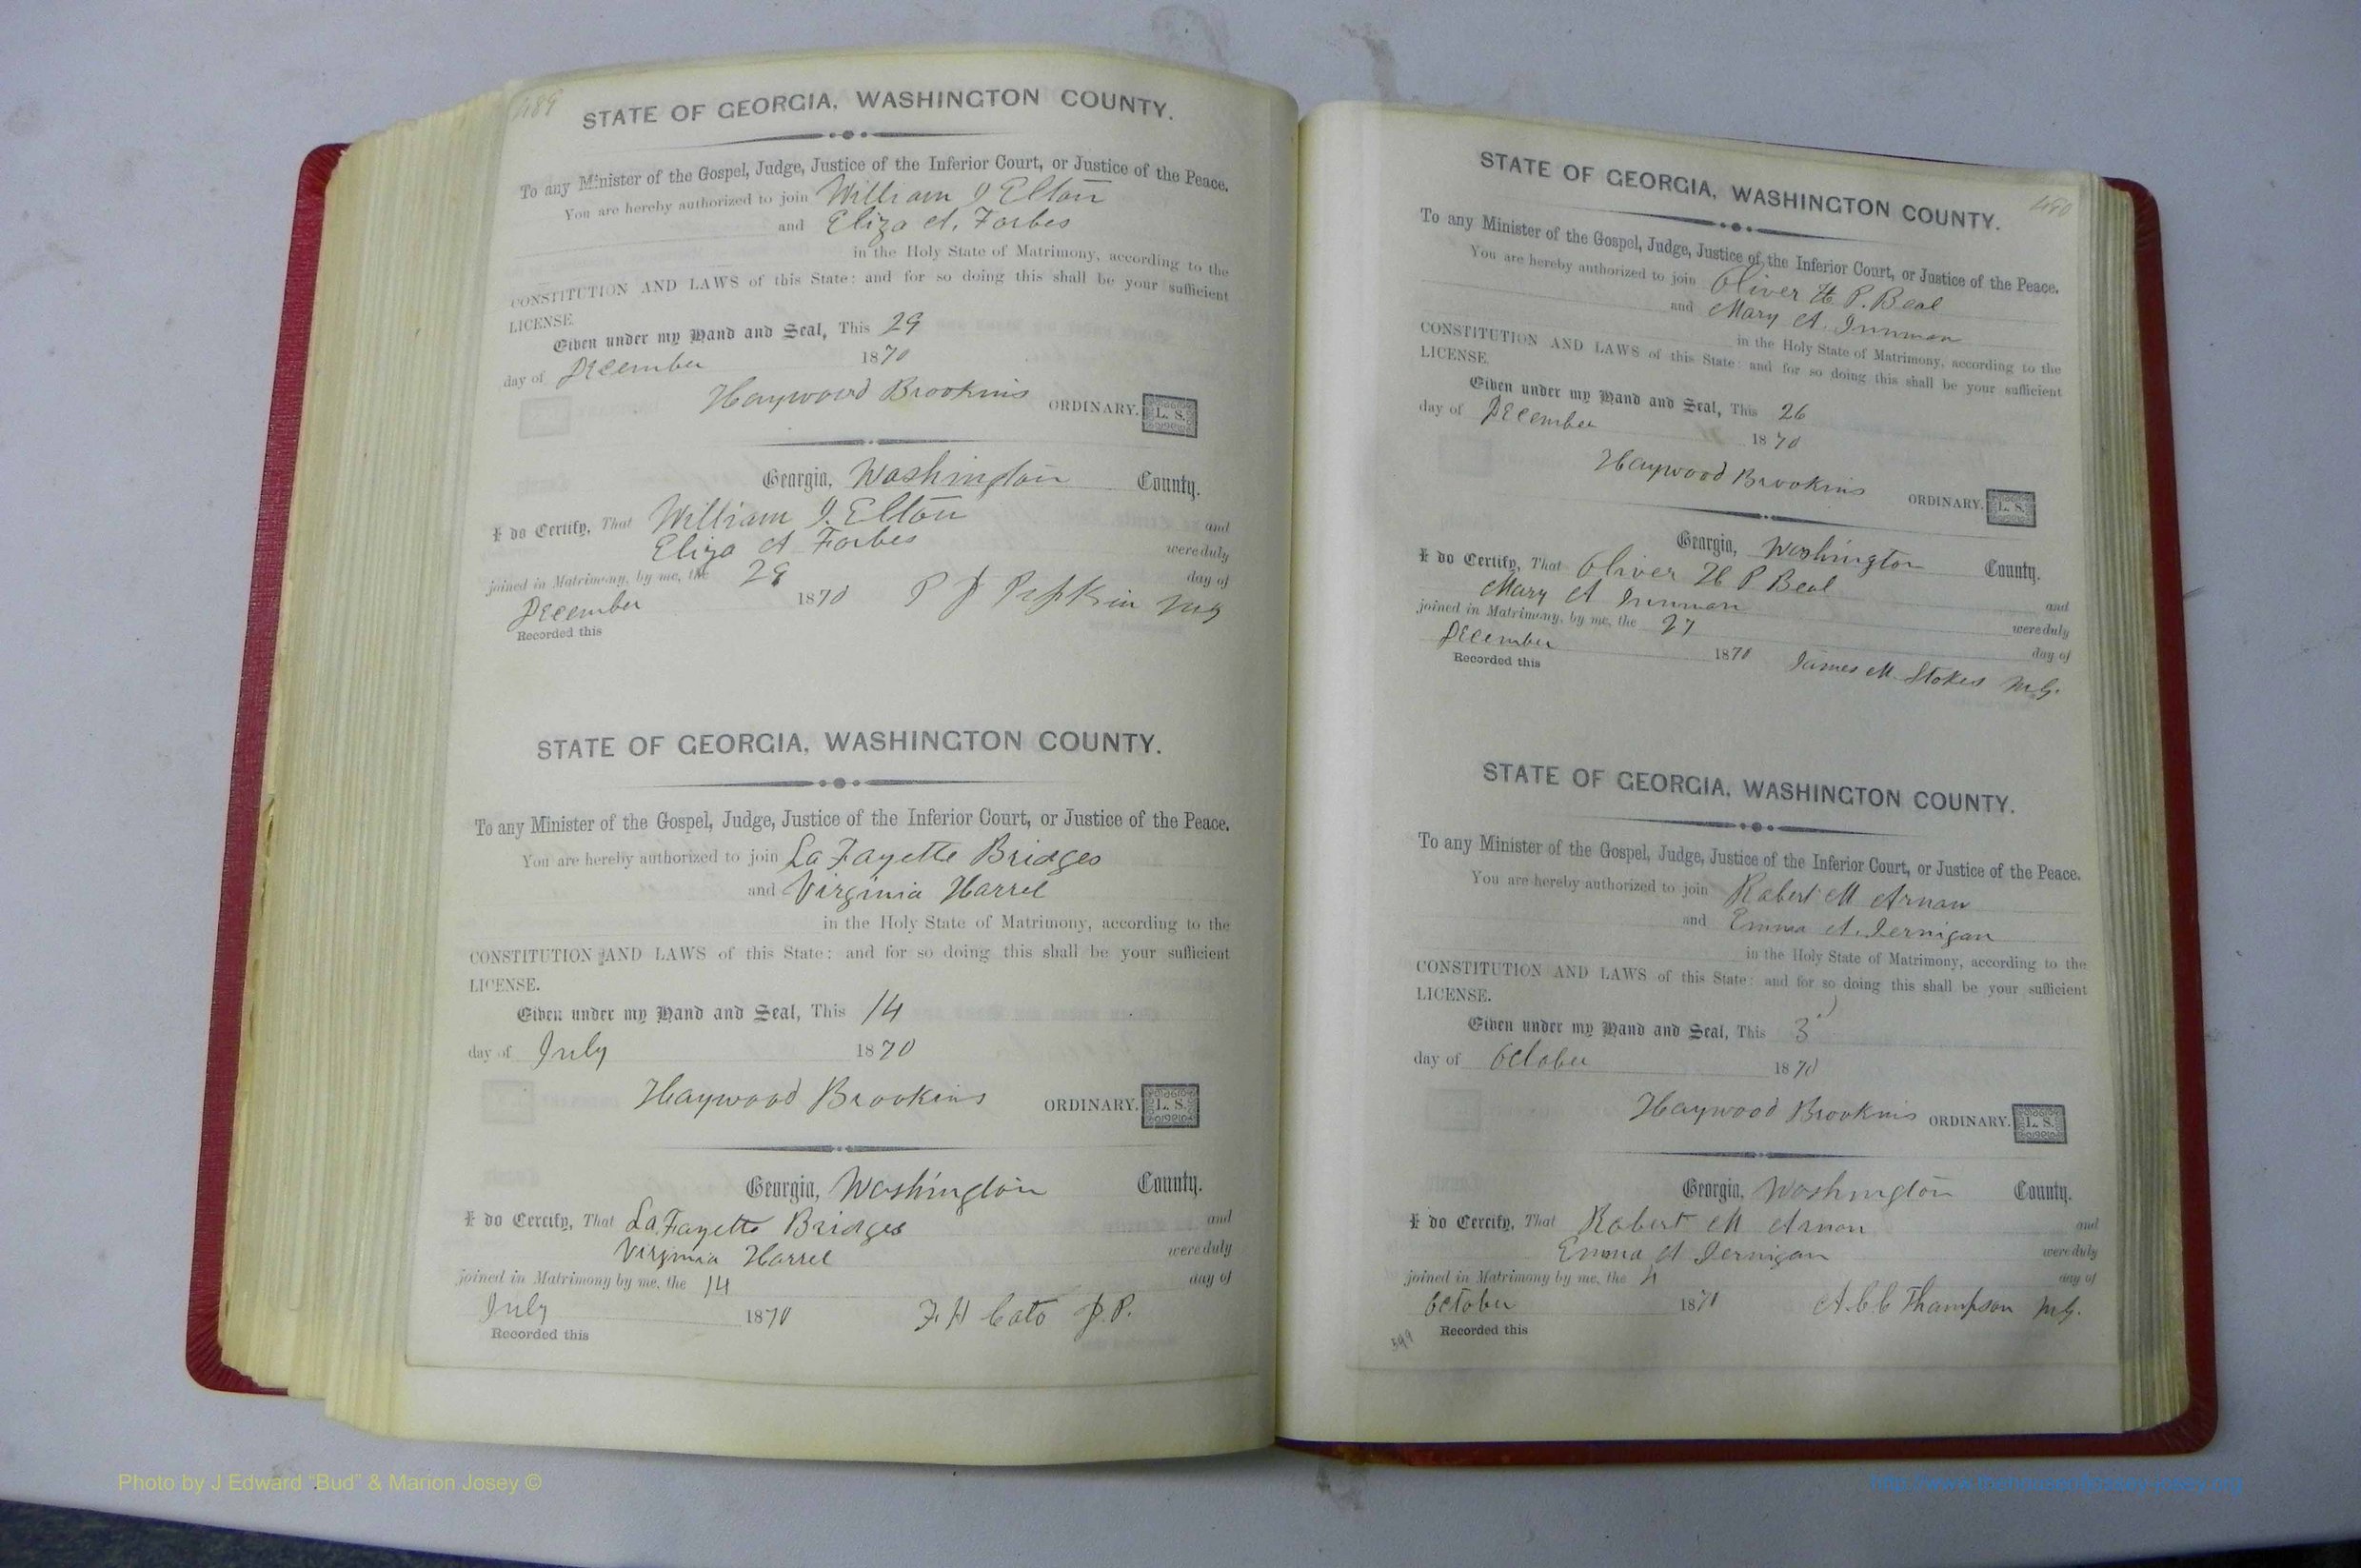 489
STATE OF GEORGIA, WASHINGTON COUNTY.
To any Minister of the Gospel, Judge, Justice of the Inferior Court, or Justice of the Peace.
You are hereby authorized to join William J Elton
and Eliza A. Forbes
in the Holy State of Matrimony, according to the
CONSTITUTION AND LAWS of this State: and for so doing this shall be your sufficient
LICENSE.
Given under my Hand and Seal, This 29
day of December 1870
Haywood Brookins ORDINARY. L. S.
Georgia, Washington County.
I do Certify, That William J. Elton and
Eliza A Forbes were duly
joined in Matrimony, by me, the 29 day of
December 1870 P J Pipkin MG
Recorded this
STATE OF GEORGIA, WASHINGTON COUNTY.
To any Minister of the Gospel, Judge, Justice of the Inferior Court, or Justice of the Peace.
You are hereby authorized to join La Fayette Bridges
and Virginia Harrel
in the Holy State of Matrimony, according to the
CONSTITUTION AND LAWS of this State: and for so doing this shall be your sufficient
LICENSE.
Given under my Hand and Seal, This 14
day of July 1870
Haywood Brookins ORDINARY. L. S.
Georgia, Washington County.
I do Certify, That La Fayette Bridges and
Virginia Harrel were duly
joined in Matrimony by me, the 14 day of
July 1870 F. H Cato J.P.
Recorded this
490
STATE OF GEORGIA, WASHINGTON COUNTY.
To any Minister of the Gospel, Judge, Justice of the Inferior Court, or Justice of the Peace.
You are hereby authorized to join Oliver H. P. Beal
and Mary A. Innman
in the Holy State of Matrimony, according to the
CONSTITUTION AND LAWS of this State: and for so doing this shall be your sufficient
LICENSE.
Given under my Hand and Seal, This 26
day of December 1870
Haywood Brookins ORDINARY. L. S.
Georgia, Washington County.
I do Certify, That Oliver H P Beal and
Mary A Innman were duly
joined in Matrimony, by me, the 27 day of
December 1870 James M. Stokes M.G.
Recorded this
STATE OF GEORGIA, WASHINGTON COUNTY.
To any Minister of the Gospel, Judge, Justice of the Inferior Court, or Justice of the Peace.
You are hereby authorized to join Robert M Arnau
and Emma A. Jernigan
in the Holy State of Matrimony, according to the
CONSTITUTION AND LAWS of this State: and for so doing this shall be your sufficient
LICENSE.
Given under my Hand and Seal, This 3
day of October 1870
Haywood Brookins ORDINARY. L. S.
Georgia, Washington County.
I do Certify, That Robert M Arnau and
Emma A Jernigan were duly
joined in Matrimony by me, the 4 day of
October 1870 A. C C Thompson M.G.
599 Recorded this
Photo by J Edward “Bud” & Marion Josey ©